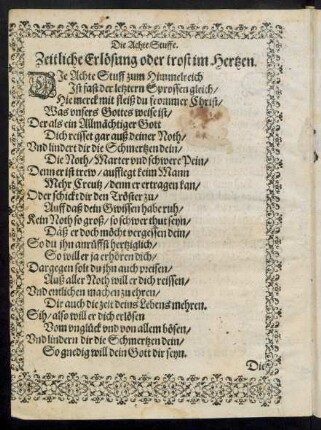 Die Achte Stuffe.
Zeitliche Erlösung oder trost im Hertzen.
DIe Achte Stuff zum Himmelreich
Ist fast der letztern Sprossen gleich/
Hie merck mit fleiß du frommer Christ/
Was vnsers Gottes weise ist/
Der als ein Allmächtiger Gott
Dich reisset gar auß deiner Noth/
Vnd lindert dir die Schmertzen dein/
Die Noth/ Marter vnd schwere Pein/
Denn er ist trew/ aufflegt keim Mann
Mehr Creutz/ denn er ertragen kan/
Oder schickt dir den Tröster zu/
Auff daß dein Gwissen habe ruh/
Kein Noth so groß/ so schwer thut seyn/
Daß er doch möcht vergessen dein/
So du ihn anrüffst hertziglich/
So will er ja erhören dich/
Dargegen solt du ihn auch preisen/
Auß aller Noth will er dich reissen/
Vnd entlichen machen zu ehren/
Dir auch die zeit deins Lebens mehren.
Sih/ also will er dich erlösen
Vom vnglück vnd von allem bösen/
Vnd lindern dir die Schmertzen dein/
So gnedig will dein Gott dir seyn.
Die